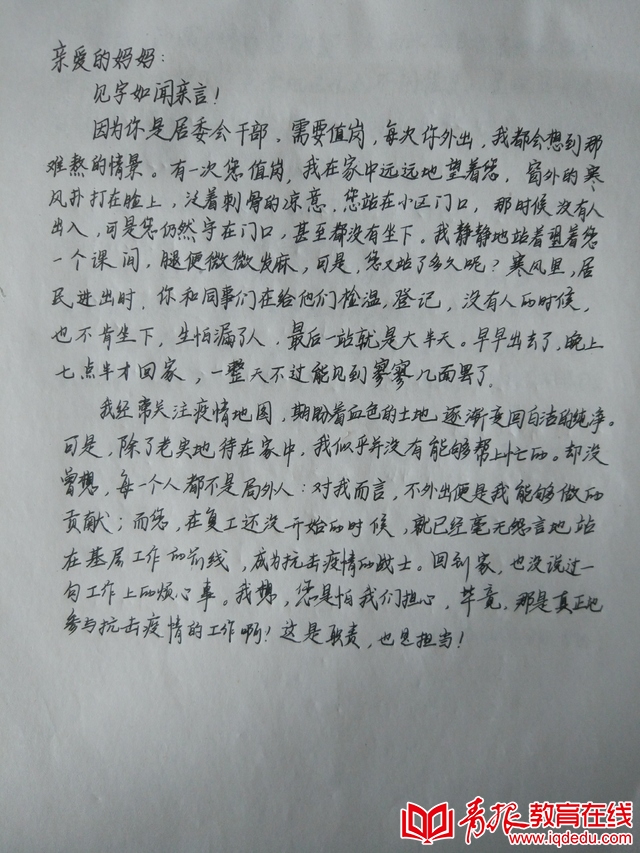 亲爱的妈妈：
见字如闻亲言！
因为你是居委会干部，需要值岗，每次你外出，我都会想到那
难熬的情景。有一次您值岗，我在家中远远地望着您，窗外的寒
风扑打在脸上，泛着刺骨的凉意，您站在小区门口，那时候没有人
出入，可是您仍然守在门口，甚至都没有坐下。我静静地站着望着您
一个课间，腿便微微发麻，可是，您又站了多久呢？寒风里，居
民进出时，你和同事们在给他们检温，登记，没有人的时候，
也不肯坐下，生怕漏了人，最后一站就是大半天。早早出去了，晚上
七点半才回家，一整天不过能见到寥寥几面罢了。
我经常关注疫情地图，期盼着血色的土地逐渐变回白洁的纯净。
可是，除了老实地待在家中，我似乎并没有能够帮上忙的。却没
曾想，每一个人都不是局外人：对我而言，不外出便是我能够做的
贡献；而您，在复工还没开始的时候，就已经毫无怨言地站
在基层工作的前线，成为抗击疫情的战士。回到家，也没说过一
句工作上的烦心事。我想，您是怕我们担心，毕竟，那是真正地
参与抗击疫情的工作啊！这是职责，也是担当！
青报教育在线
www.iqdedu.com